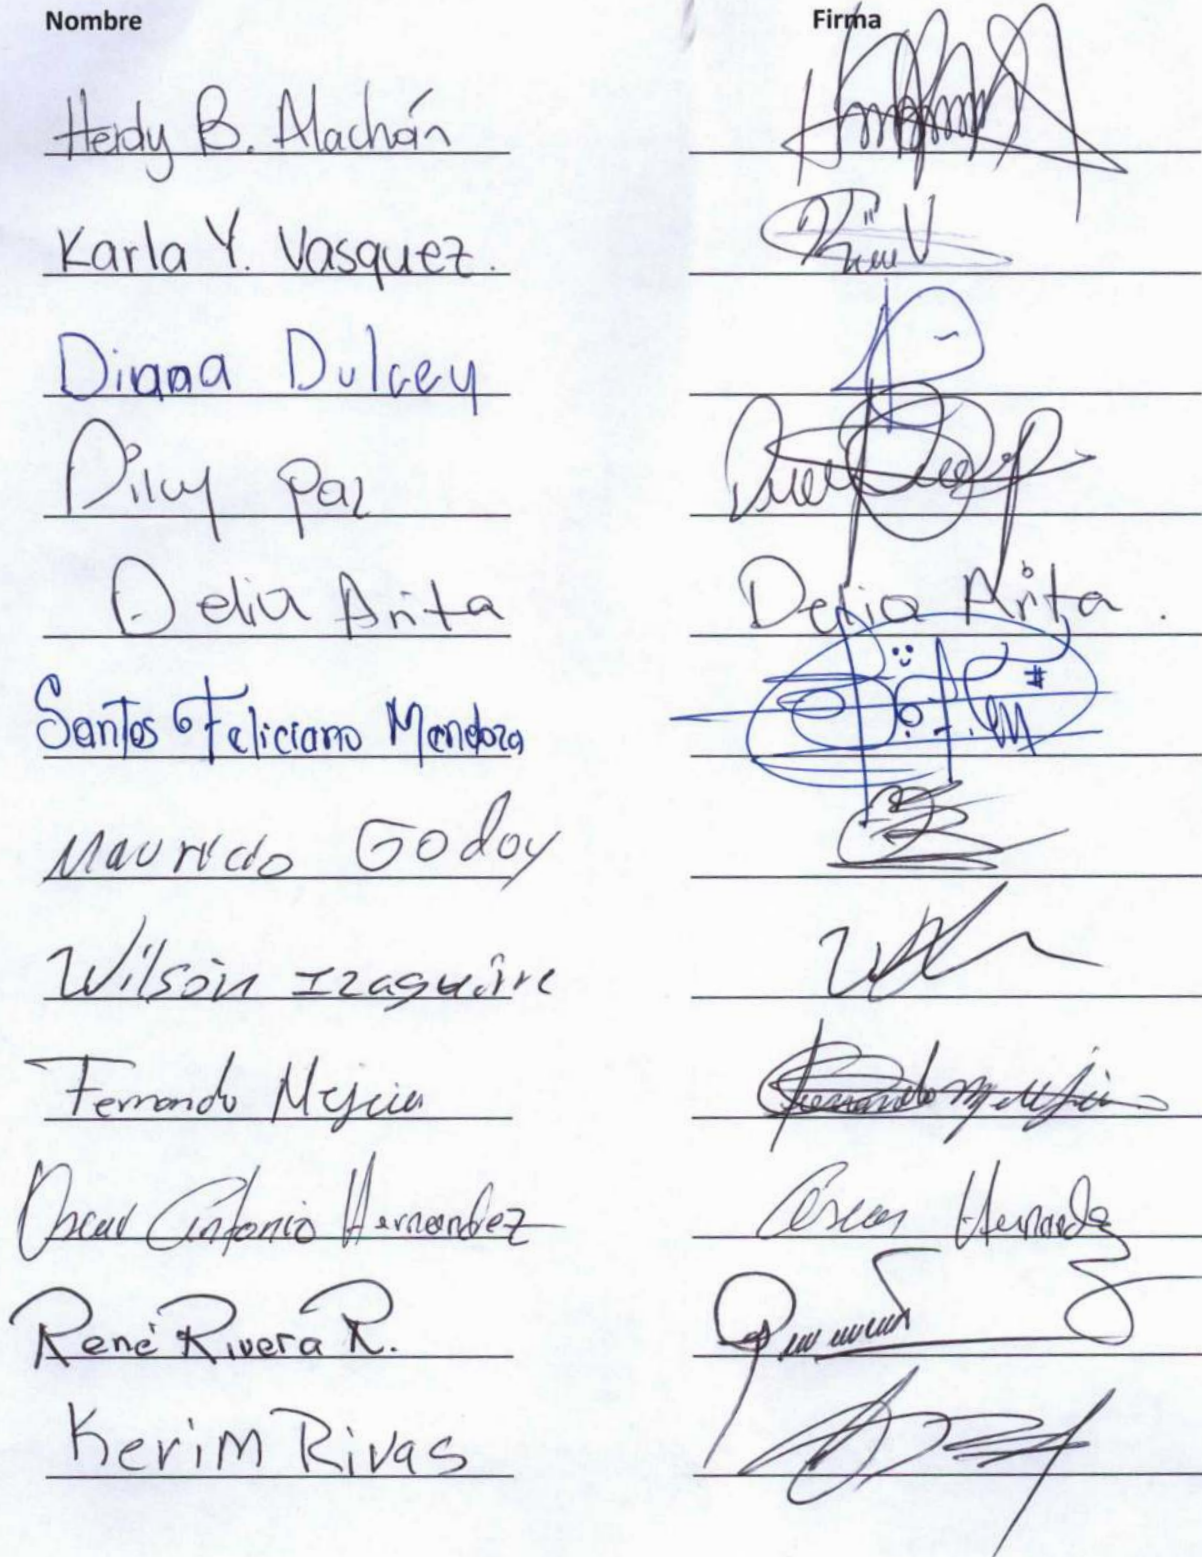 Nombre Firma
Heidy B. Alachán
Karla Y. Vasquez.
Diana Dulcey
Dilcy Paz
Delia Arita Delia Arita.
Santos Feliciano Mendoza
Mauricio Godoy
Wilson Izaguirre
Fernando Mejia
Oscar Antonio Hernandez Oscar Hernandez
René Rivera R.
Kerim Rivas